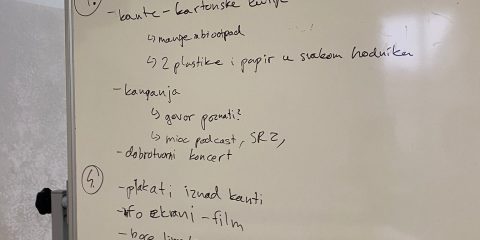 - kante - kartonske kutije
↳ manje za biootpad
↳ 2 plastike i papir u svakom hodniku
- kampanja
↳ govor poznati?
↳ mioc podcast, SRZ,
- dobrotvorni koncert
4.
- plakati iznad kanti
- info ekrani - film